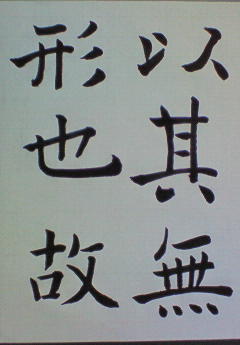 以其無
形也故